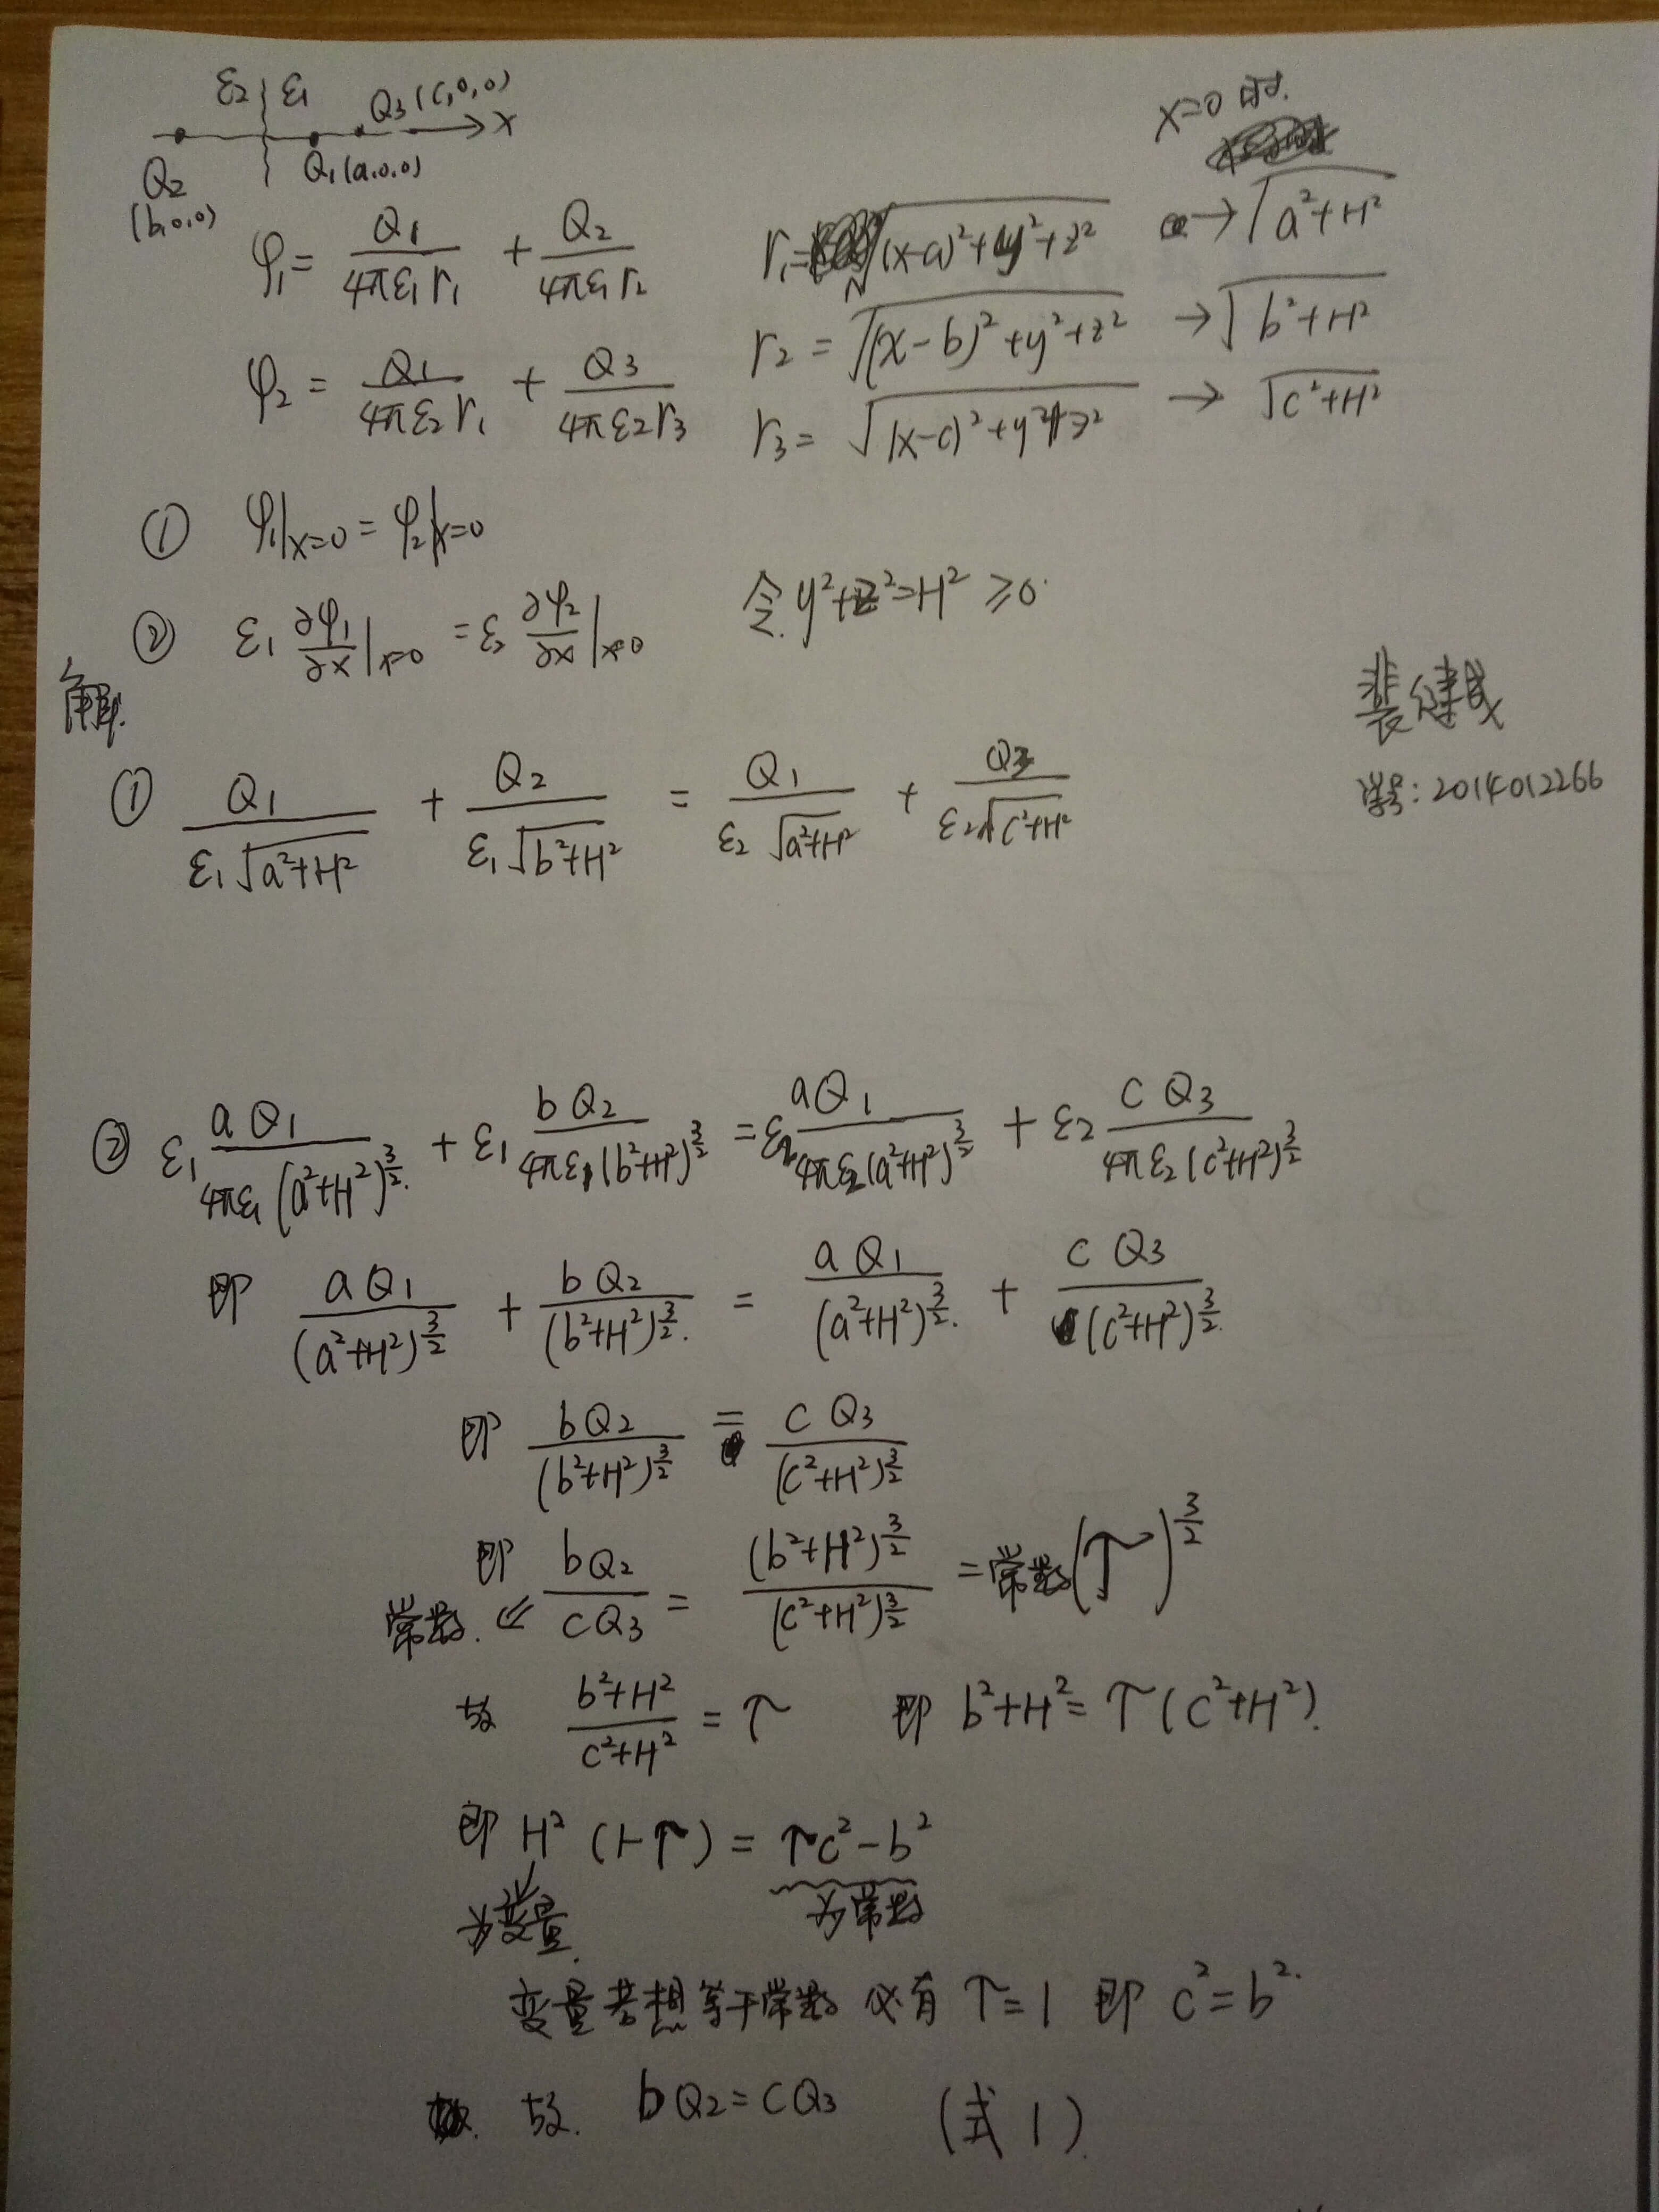 ε₂ ε₁ Q₃(c,0,0) x
Q₂ (b,0,0) Q₁(a,0,0)
x=0时.
φ₁ = Q₁/(4πε₁r₁) + Q₂/(4πε₁r₂)
r₁ = √((x-a)²+y²+z²) → √(a²+H²)
φ₂ = Q₁/(4πε₂r₁) + Q₃/(4πε₂r₃)
r₂ = √((x-b)²+y²+z²) → √(b²+H²)
r₃ = √((x-c)²+y²+z²) → √(c²+H²)
① φ₁|x=0 = φ₂|x=0
② ε₁ ∂φ₁/∂x|x=0 = ε₂ ∂φ₂/∂x|x=0 令 y²+z²=H² ≥0.
解.
裴健
学号: 2014012266
① Q₁/(ε₁√(a²+H²)) + Q₂/(ε₁√(b²+H²)) = Q₁/(ε₂√(a²+H²)) + Q₃/(ε₂√(c²+H²))
② ε₁ aQ₁/(4πε₁(a²+H²)^(3/2)) + ε₁ bQ₂/(4πε₁(b²+H²)^(3/2)) = ε₂ aQ₁/(4πε₂(a²+H²)^(3/2)) + ε₂ cQ₃/(4πε₂(c²+H²)^(3/2))
即 aQ₁/(a²+H²)^(3/2) + bQ₂/(b²+H²)^(3/2) = aQ₁/(a²+H²)^(3/2) + cQ₃/(c²+H²)^(3/2)
即 bQ₂/(b²+H²)^(3/2) = cQ₃/(c²+H²)^(3/2)
即 常数. ⇐ bQ₂/cQ₃ = (b²+H²)^(3/2)/(c²+H²)^(3/2) = 常数(T)^(3/2)
故 (b²+H²)/(c²+H²) = T 即 b²+H² = T(c²+H²).
即 H²(1-T) = Tc²-b²
为变量. 为常数
变量若想等于常数 必有 T=1 即 c²=b².
故. bQ₂=cQ₃ (式1)